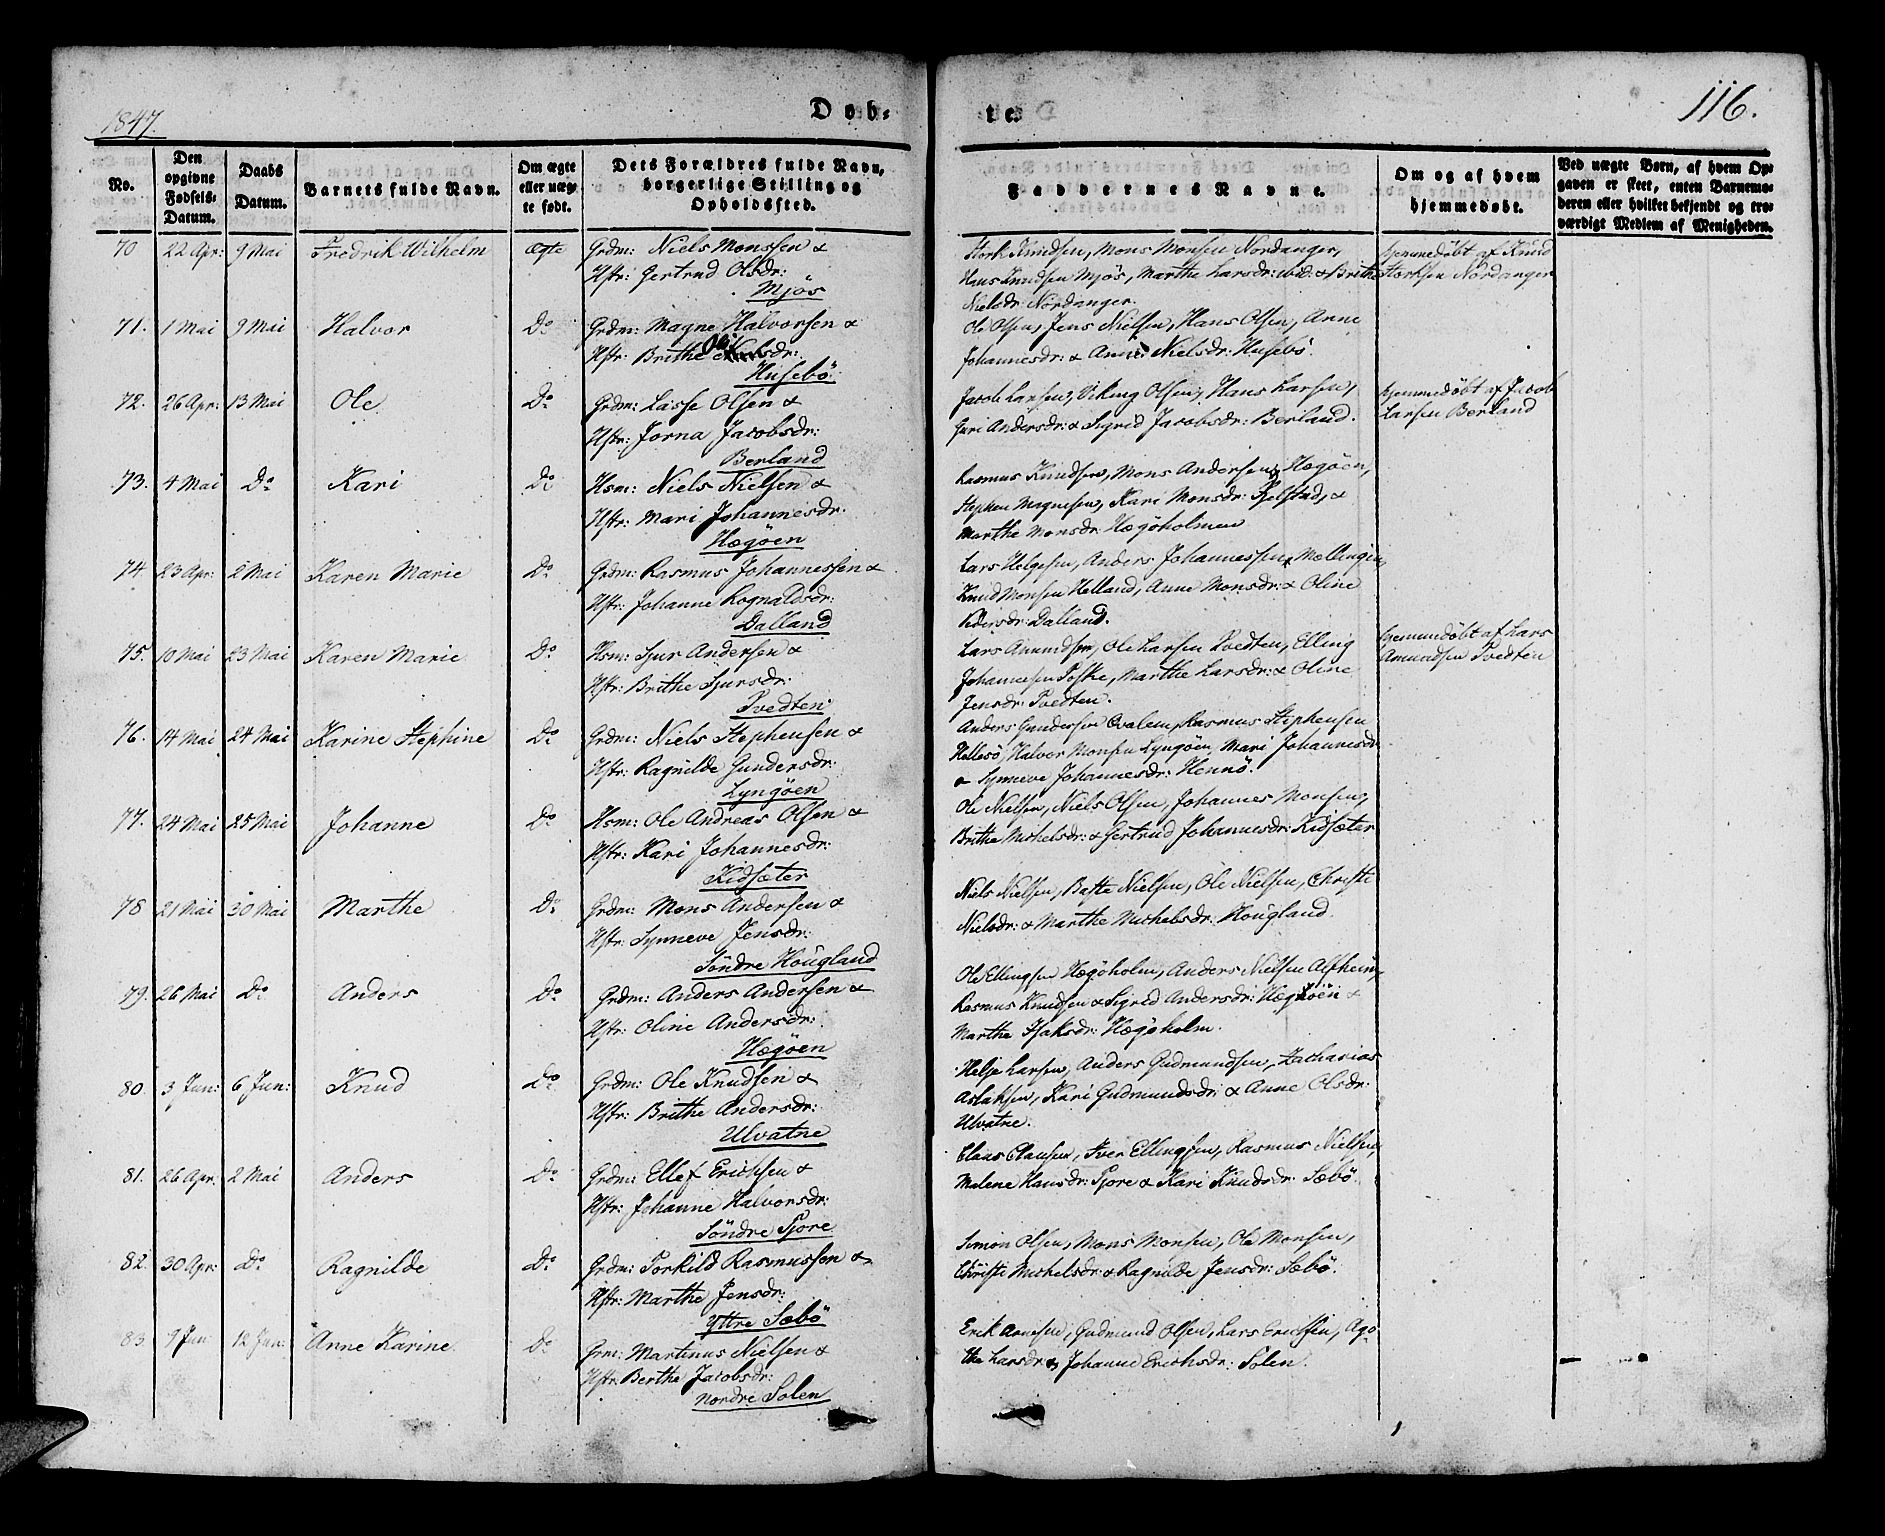 1847.
Døb-
te.
116.
No.
Den opgivne Fødsels-Datum.
Daabs Datum.
Barnets fulde Navn.
Om ægte eller uægte født.
Dets Forældres fulde Navn, borgerlige Stilling og Opholdssted.
Faddernes Navne.
Om og af hvem hjemmedøbt.
Ved uægte Børn, af hvem Opgaven er skeet, enten Barnemoderen eller hvilket bekjendt og troværdigt Medlem af Menigheden.
70 22 Apr: 9 Mai Fredrik Wilhelm ægte Grdm: Niels Monssen &
Hstr: Gertrud Olsdr:
Mjøs
Stork Knudsen, Mons Monsen Nordanger,
Hans Knudsen Mjøs, Marthe Larsdr: ibid: & Brithe
Nielsdr: Nordanger.
hjemmedøbt af Knud
Storksen Nordanger
71. 1 Mai 9 Mai Halvor Do Grdm: Magne Halvorsen &
Hstr: Brithe Olsdr:
Husebö
Ole Olsen, Jens Nielsen, Hans Olsen, Anne
Johannesdr: & Anne Nielsdr: Husebö.
72. 26 Apr: 13 Mai Ole Do Grdm: Lasse Olsen &
Hstr: Jorna Jacobsdr:
Berland
Jacob Larsen, Viking Olsen, Hans Larsen,
Guri Andersdr: & Sigrid Jacobsdr: Berland.
hjemmedöbt af Jacob
Larsen Berland
73. 4 Mai Do Kari Do Hsm: Niels Nielsen &
Hstr: Mari Johannesdr:
Hægöen
Rasmus Knudsen, Mons Andersen Hægöen,
Stephen Magnesen, Kari Monsdr: Fjelstad, &
Marthe Monsdr: Hægöholmen
74. 23 Apr: 2 Mai Karen Marie Do Grdm: Rasmus Johannessen &
Hstr: Johanne Rognaldsdr:
Dalland
Lars Helgesen, Anders Johannessen Mællingen,
Knud Monsen Helland, Anne Monsdr: & Oline
Pedersdr: Dalland.
75. 10 Mai 23 Mai Karen Marie Do Hsm: Sjur Andersen &
Hstr: Brithe Sjursdr:
Tvedten
Lars Amundsen, Ole Larsen Tvedten, Elling
Johannesen Toske, Marthe Larsdr: & Oline
Jensdr: Tvedten.
hjemmedöbt af Lars
Amundsen Tvedten
76. 14 Mai 24 Mai Karine Stephine Do Grdm: Niels Stephensen &
Hstr: Ragnilde Gundersdr:
Lyngöen
Anders Gundersen Qvalem, Rasmus Stephensen
Hallesö, Halvor Monsen Lyngöen, Mari Johannesdr:
& Synneve Johannesdr: Hennö.
77. 24 Mai 25 Mai Johanne Do Hsm: Ole Andreas Olsen &
Hstr: Kari Johannesdr:
Kidsæter
Ole Nielsen, Niels Olsen, Johannes Monsen,
Brithe Michelsdr: & Gertrud Johannesdr: Kidsæter
78 21 Mai 30 Mai Marthe Do Grdm: Mons Andersen &
Hstr: Synneve Jensdr:
Söndre Hougland
Niels Nielsen, Baste Nielsen, Ole Nielsen, Christi
Nielsdr: & Marthe Michelsdr: Hougland.
79. 26 Mai Do Anders Do Grdm: Anders Andersen &
Hstr: Oline Andersdr:
Hægöen
Ole Ellingsen Hægöholm, Anders Nielsen Alfheim,
Rasmus Knudsen & Sigrid Andersdr: Hægöen &
Marthe Isaksdr: Hægöholm.
80. 3 Jun: 6 Jun: Knud Do Grdm: Ole Knudsen &
Hstr: Brithe Andersdr:
Ulvatne
Helje Larsen, Anders Gudmundsen, Zacharias
Aslaksen, Kari Gudmundsdr: & Anne Olsdr:
Ulvatne.
81. 26 Apr. 2 Mai Anders Do Grdm: Ellef Erichsen &
Hstr: Johanne Halvorsdr:
Söndre Tjore
Claas Clausen, Iver Ellingsen, Rasmus Nielsen,
Malene Hansdr: Tjore & Kari Knudsdr: Sæbö.
82. 30 Apr: Do Ragnilde Do Grdm: Torkild Rasmussen &
Hstr: Marthe Jensdr:
Yttre Sæbö
Simon Olsen, Mons Monsen, Ole Monsen,
Christi Michelsdr: & Ragnilde Jensdr: Sæbö.
83. 9 Jun 12 Jun: Anne Karine Do Grm: Martinus Nielsen &
Hstr: Berthe Jacobsdr:
Nordre Solen
Erik Arnesen, Gudmund Olsen, Lars Ericksen, Aga
the Larsdr: & Johanne Erichsdr: Solen.